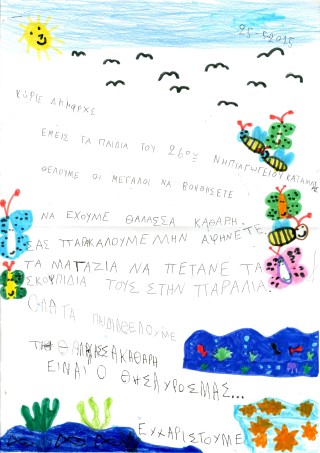 25-5-2015
ΚΥΡΙΕ ΔΗΜΑΡΧΕ
ΕΜΕΙΣ ΤΑ ΠΑΙΔΙΑ ΤΟΥ 26ου ΝΗΠΙΑΓΩΓΕΙΟΥ
ΘΕΛΟΥΜΕ ΟΙ ΜΕΓΑΛΟΙ ΝΑ ΒΟΗΘΗΣΕΤΕ
ΝΑ ΕΧΟΥΜΕ ΘΑΛΑΣΣΑ ΚΑΘΑΡΗ.
ΣΑΣ ΠΑΡΑΚΑΛΟΥΜΕ ΜΗΝ ΑΦΗΝΕΤΕ
ΤΑ ΜΑΓΑΖΙΑ ΝΑ ΠΕΤΑΝΕ ΤΑ
ΣΚΟΥΠΙΔΙΑ ΤΟΥΣ ΣΤΗΝ ΠΑΡΑΛΙΑ.
ΟΛΑ ΤΑ ΠΑΙΔΙΑ ΘΕΛΟΥΜΕ
ΤΗ ΘΑΛΑΣΣΑ ΚΑΘΑΡΗ
ΕΙΝΑΙ Ο ΘΗΣΑΥΡΟΣ ΜΑΣ...
ΕΥΧΑΡΙΣΤΟΥΜΕ